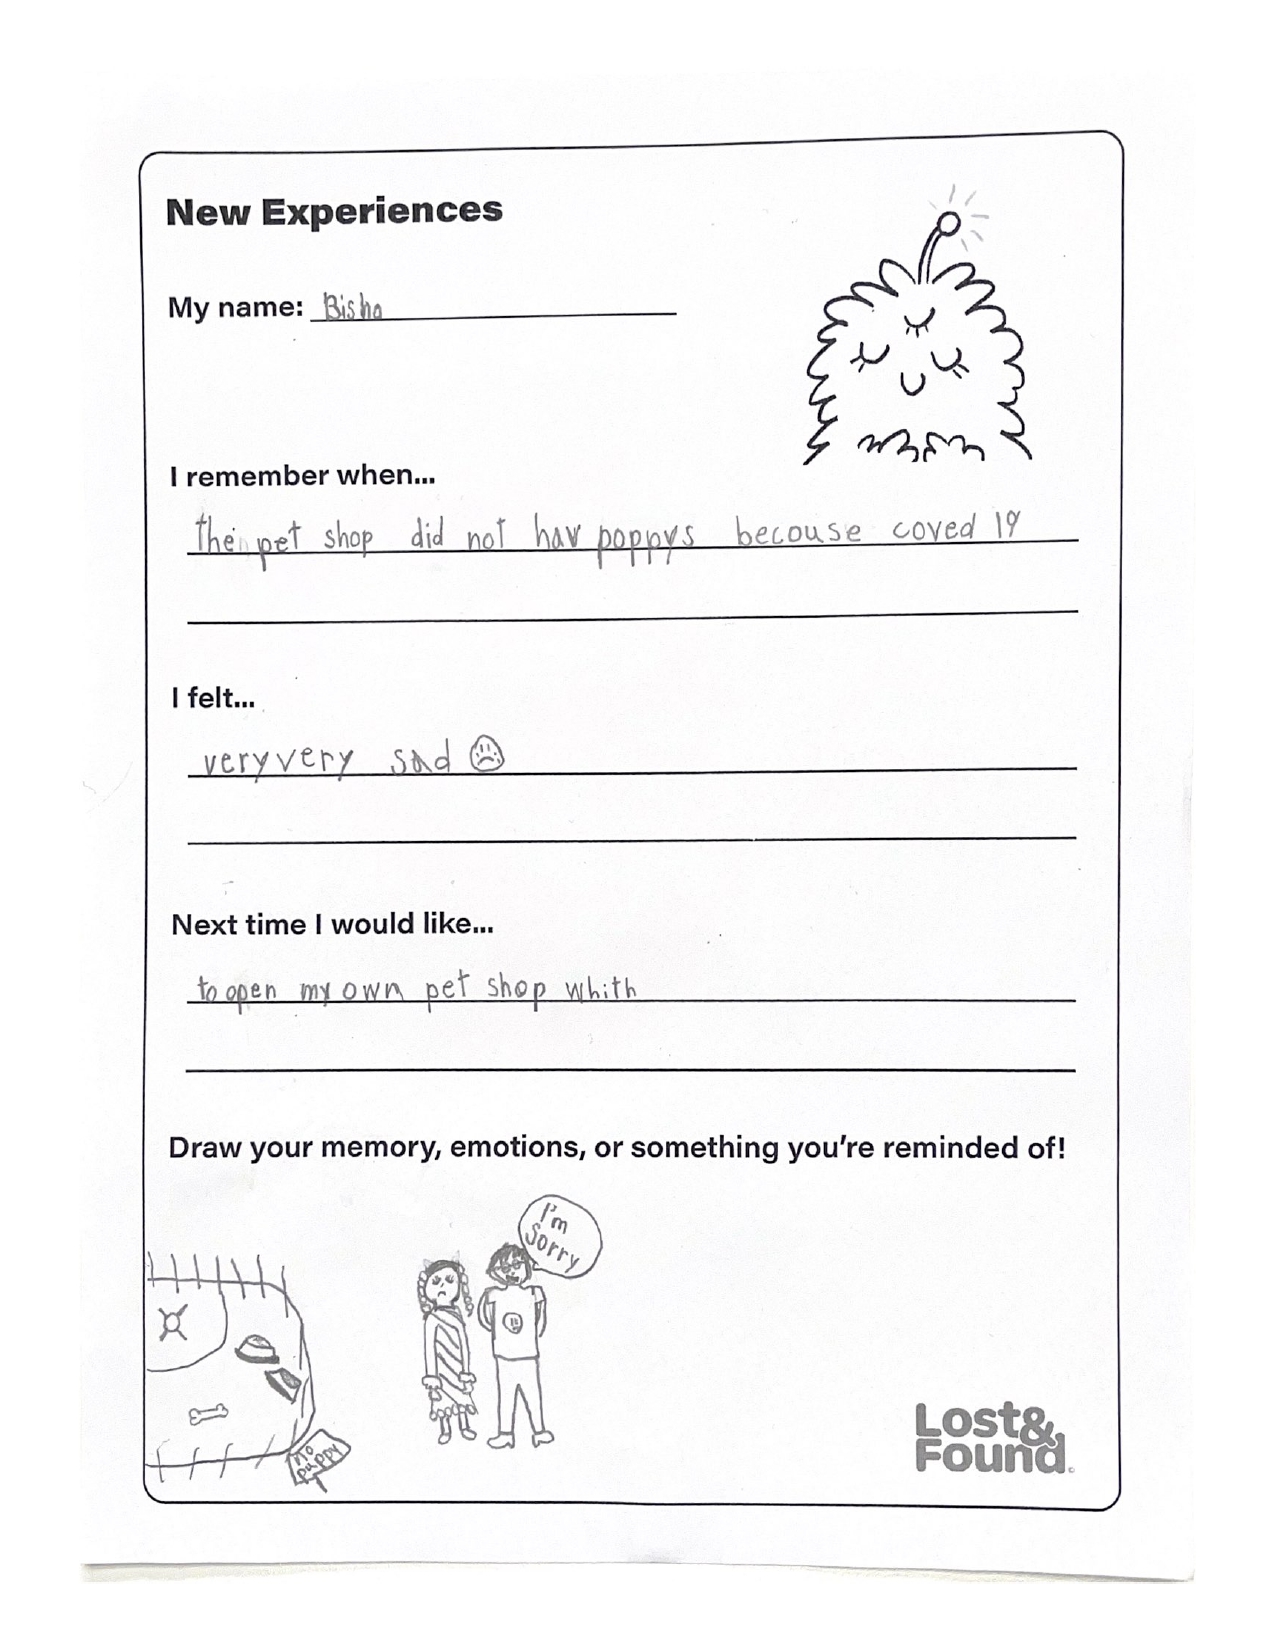 New Experiences
My name: Bisha
I remember when...
the pet shop did not hav poppys becouse coved 19
I felt...
very very sad
Next time I would like...
to open my own pet shop whith
Draw your memory, emotions, or something you're reminded of!
I'm
Sorry
no
puppy
Lost&
Found